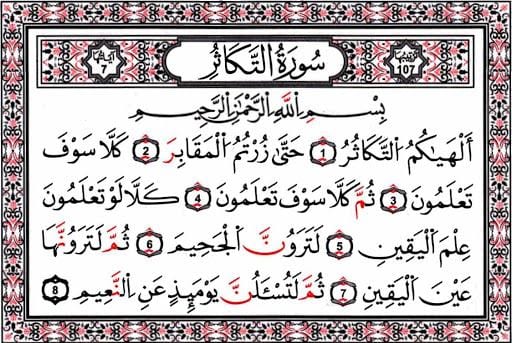 آياتها 7 سُورَةُ التَّكَاثُرِ ترتيبها 107
بِسْمِ اللَّهِ الرَّحْمَٰنِ الرَّحِيمِ
أَلْهَىٰكُمُ التَّكَاثُرُ 1 حَتَّىٰ زُرْتُمُ الْمَقَابِرَ 2 كَلَّا سَوْفَ
تَعْلَمُونَ 3 ثُمَّ كَلَّا سَوْفَ تَعْلَمُونَ 4 كَلَّا لَوْ تَعْلَمُونَ
عِلْمَ الْيَقِينِ 5 لَتَرَوُنَّ الْجَحِيمَ 6 ثُمَّ لَتَرَوُنَّهَا
عَيْنَ الْيَقِينِ 7 ثُمَّ لَتُسْـَٔلُنَّ يَوْمَئِذٍ عَنِ النَّعِيمِ 8